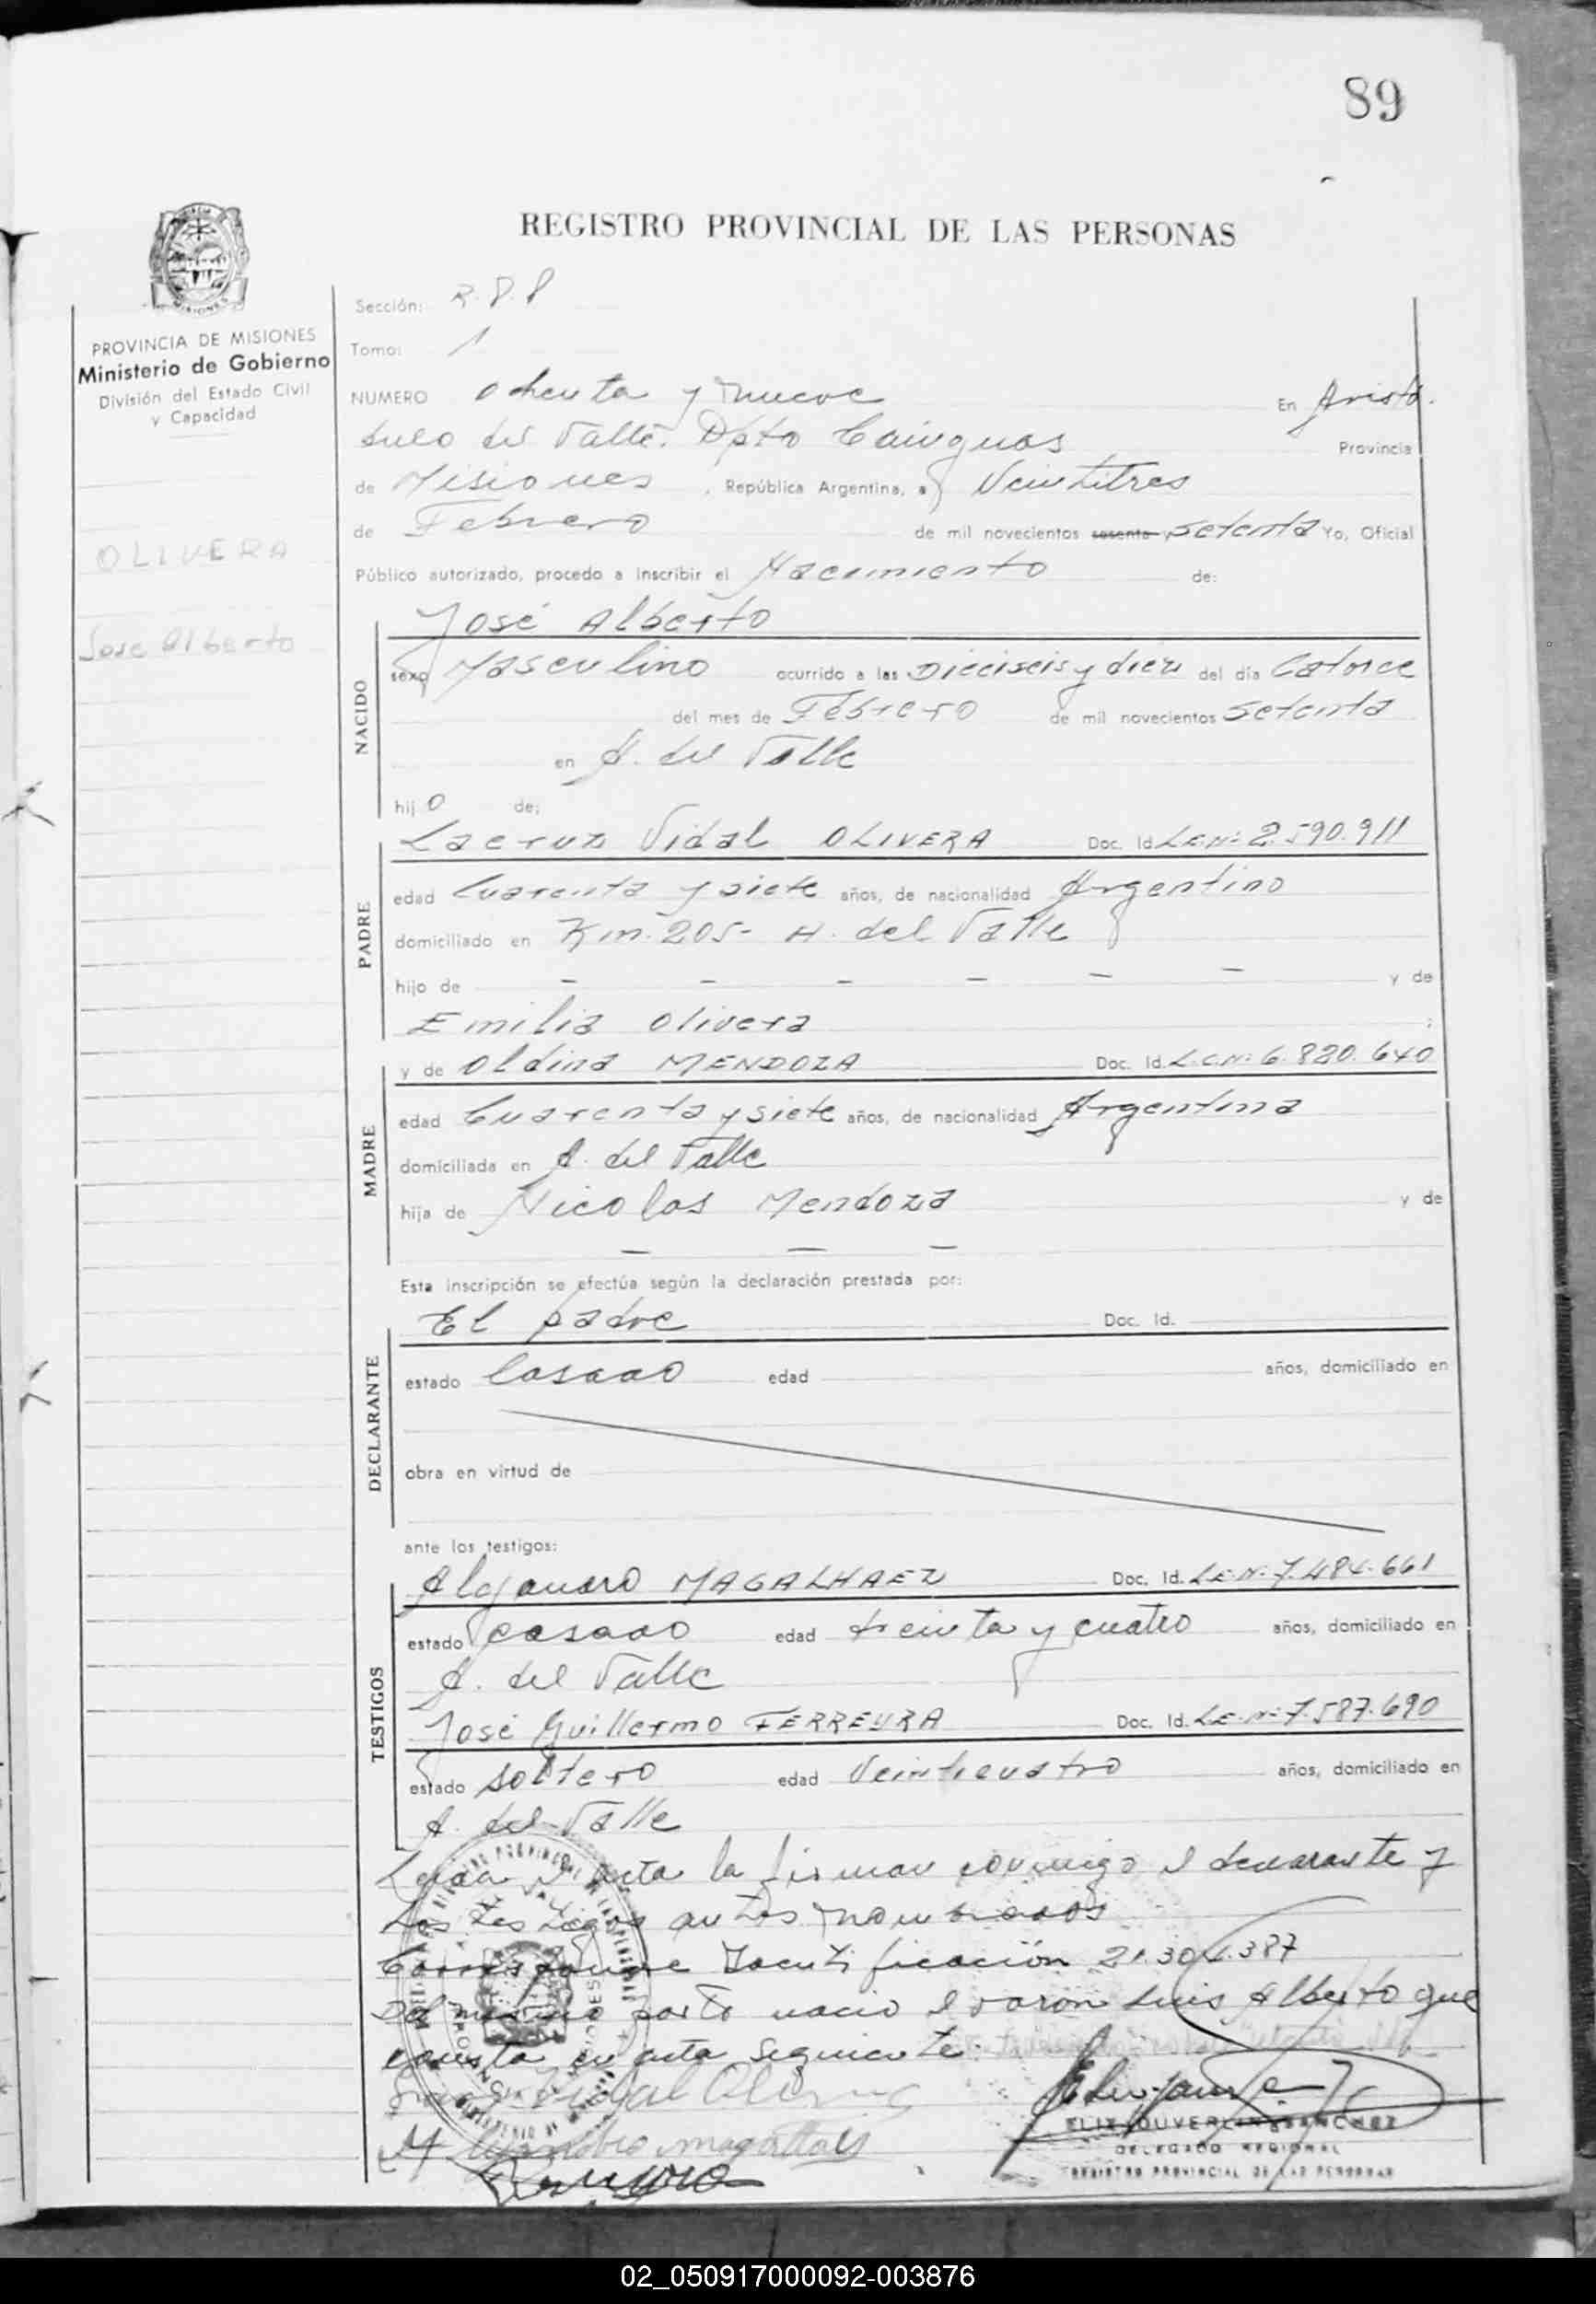 89
REGISTRO PROVINCIAL DE LAS PERSONAS
MISIONES
PROVINCIA DE MISIONES
Ministerio de Gobierno
División del Estado Civil
y Capacidad
OLIVERA
Jose Alberto
Sección: R.P.P
Tomo: 1
NUMERO ochenta y nueve En Aristó.
bulo del Valle. Dpto Cainguas Provincia
de Misiones, República Argentina, a Veintitres
de Febrero de mil novecientos sesenta y setenta Yo, Oficial
Público autorizado, procedo a inscribir el Nacimiento de:
NACIDO
José Alberto
sexo Masculino ocurrido a las Dieciseis y diez del día Catorce
del mes de Febrero de mil novecientos setenta
en A. del Valle
hijo de:
PADRE
Lacruz Vidal OLIVERA Doc. Id. L.E.Nº 2.590.911
edad Cuarenta y siete años, de nacionalidad Argentino
domiciliado en Km. 205- A. del Valle
hijo de - - - - - - y de
Emilia Olivera ;
MADRE
y de Oldina MENDOZA Doc. Id. L.C.Nº 6.820.640
edad Cuarenta y siete años, de nacionalidad Argentina
domiciliada en A. del Valle
hija de Nicolas Mendoza y de
- - -
Esta inscripción se efectúa según la declaración prestada por:
DECLARANTE
El padre Doc. Id.
estado Casado edad años, domiciliado en
obra en virtud de
ante los testigos:
TESTIGOS
Alejandro MAGALHAEZ Doc. Id. L.E.Nº 7.484.661
estado casado edad treinta y cuatro años, domiciliado en
A. del Valle
José Guillermo FERREYRA Doc. Id. L.E.Nº 7.587.690
estado soltero edad Veinticuatro años, domiciliado en
A. del Valle
Leida el acta la firman conmigo el declarante y
los testigos antes nombrados
Corresponde Identificación 21.304.387
Del mismo parto nacio el varon Luis Alberto que
consta en acta siguiente.
Vidal
SANCHEZ
DELEGADO REGIONAL
REGISTRO PROVINCIAL DE LAS PERSONAS
02_050917000092-003876